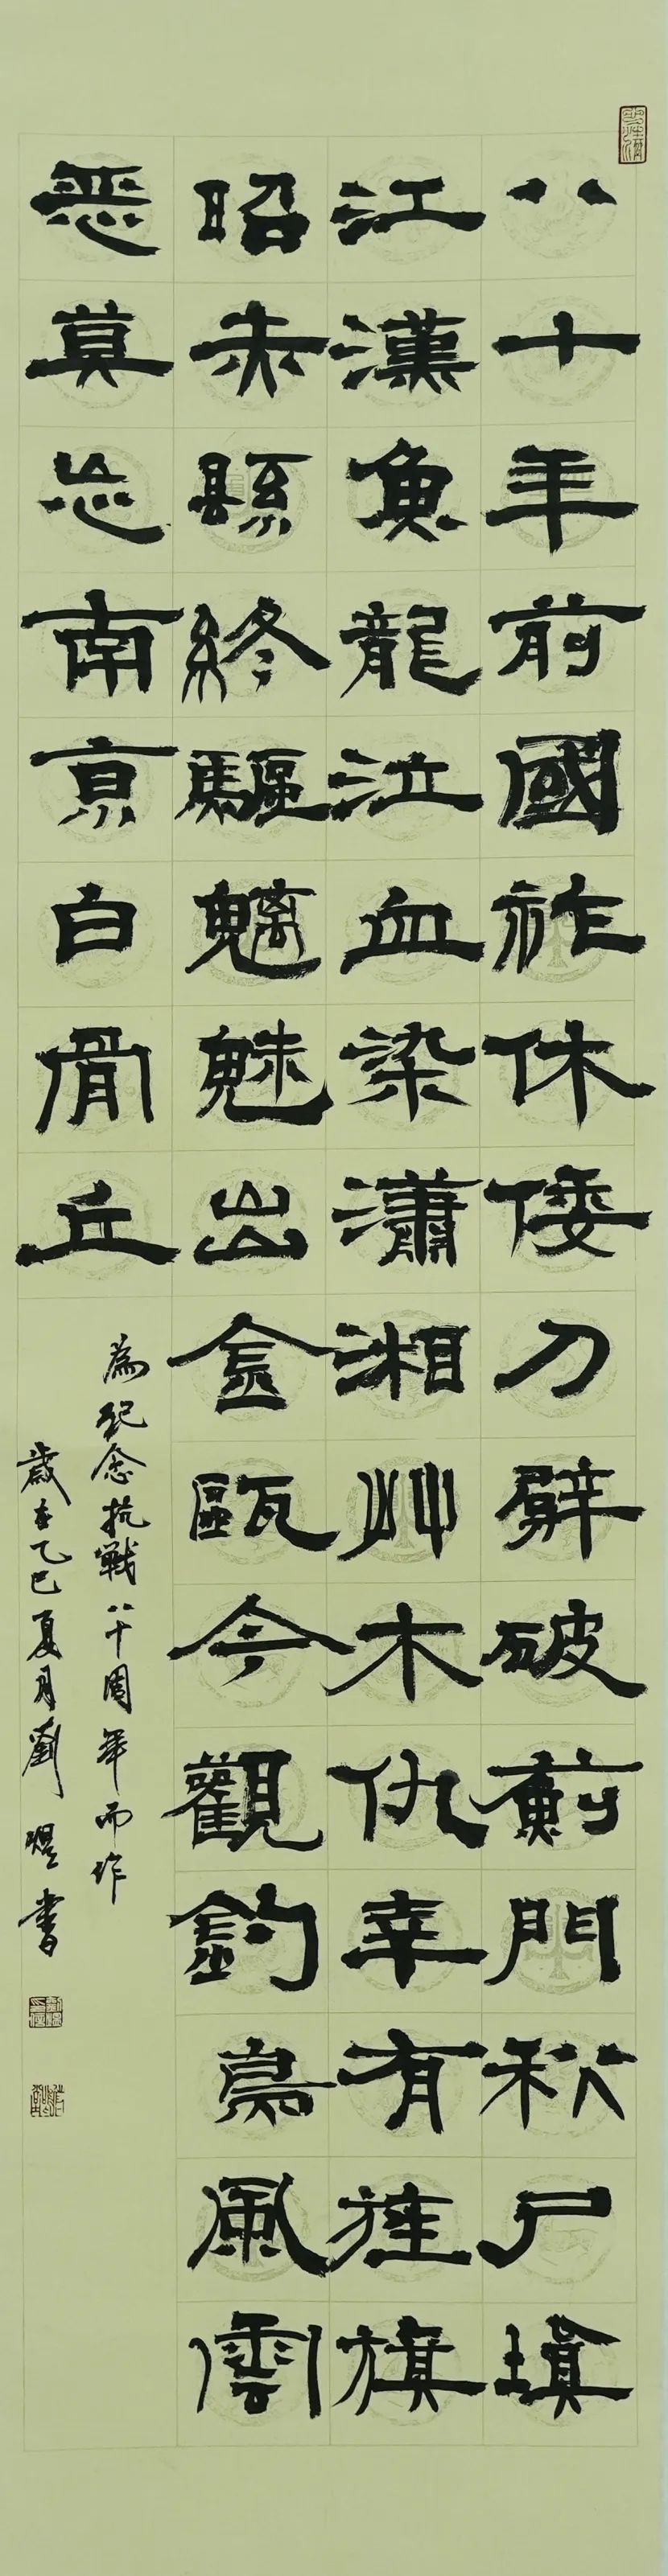 八十年前國祚休倭刀劈破薊門秋尸填
江漢魚龍泣血染瀟湘艸木仇幸有旌旗
昭赤縣終驅魑魅出金甌今觀釣島風雲
惡莫忘南京白骨丘
為紀念抗戰八十周年而作
歲在乙巳夏月劉煜書